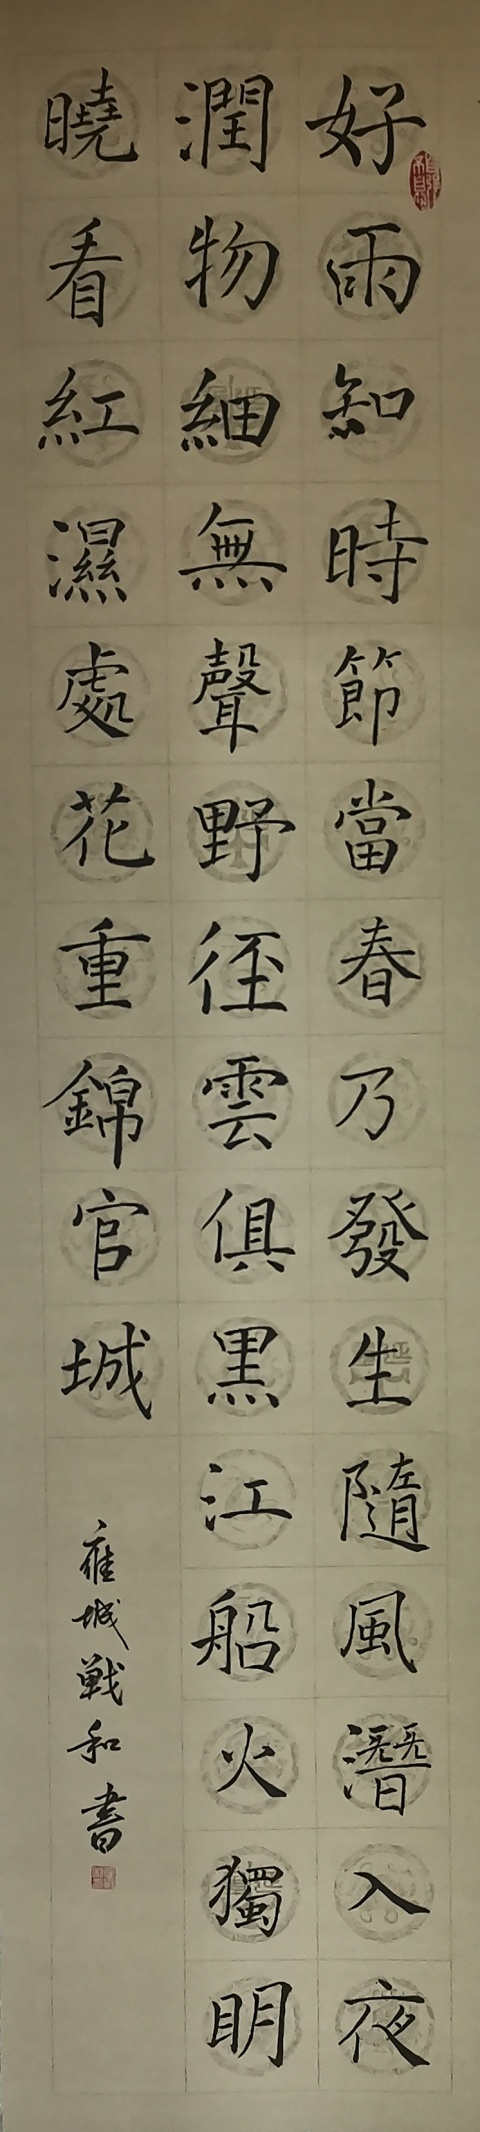 好雨知時節當春乃發生隨風潛入夜
潤物細無聲野徑雲俱黑江船火獨明
曉看紅濕處花重錦官城
雍城戰和書